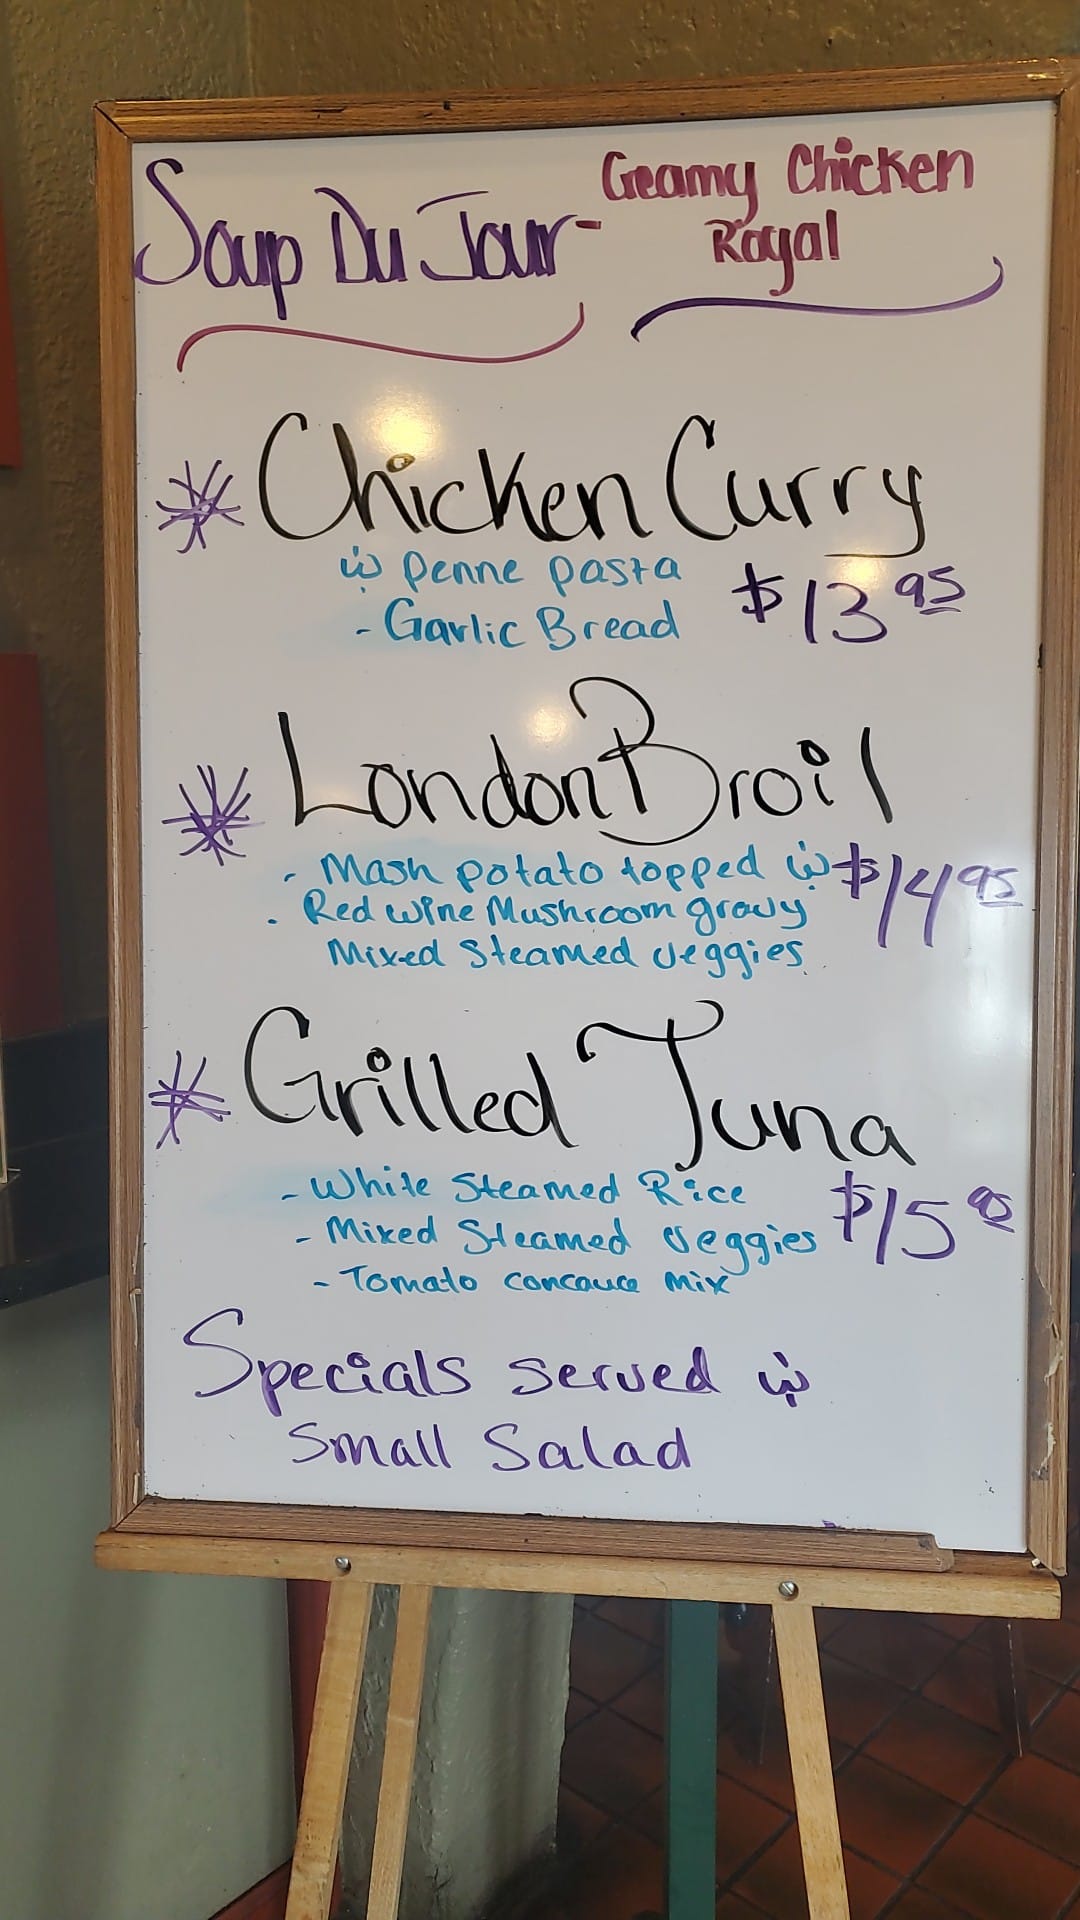 Soup Du Jour - Creamy Chicken
Royal
Chicken Curry
w/ penne pasta
- Garlic Bread $13.95
London Broil
- Mash potato topped w/ $14.95
- Red wine Mushroom gravy
Mixed Steamed veggies
Grilled Tuna
- White Steamed Rice
- Mixed Steamed veggies $15.95
- Tomato concauce mix
Specials served w/
Small Salad